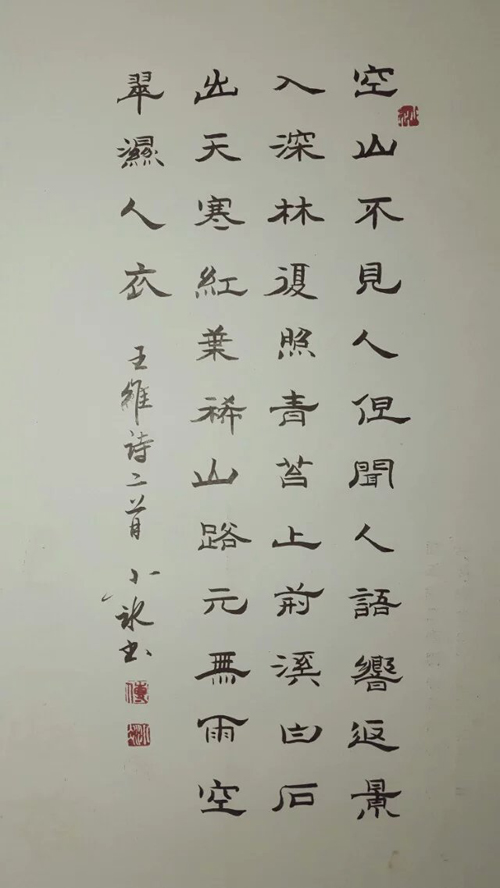 空山不見人但聞人語響返景
入深林復照青苔上荊溪白石
出天寒紅葉稀山路元無雨空
翠濕人衣
王維詩二首 小冰书